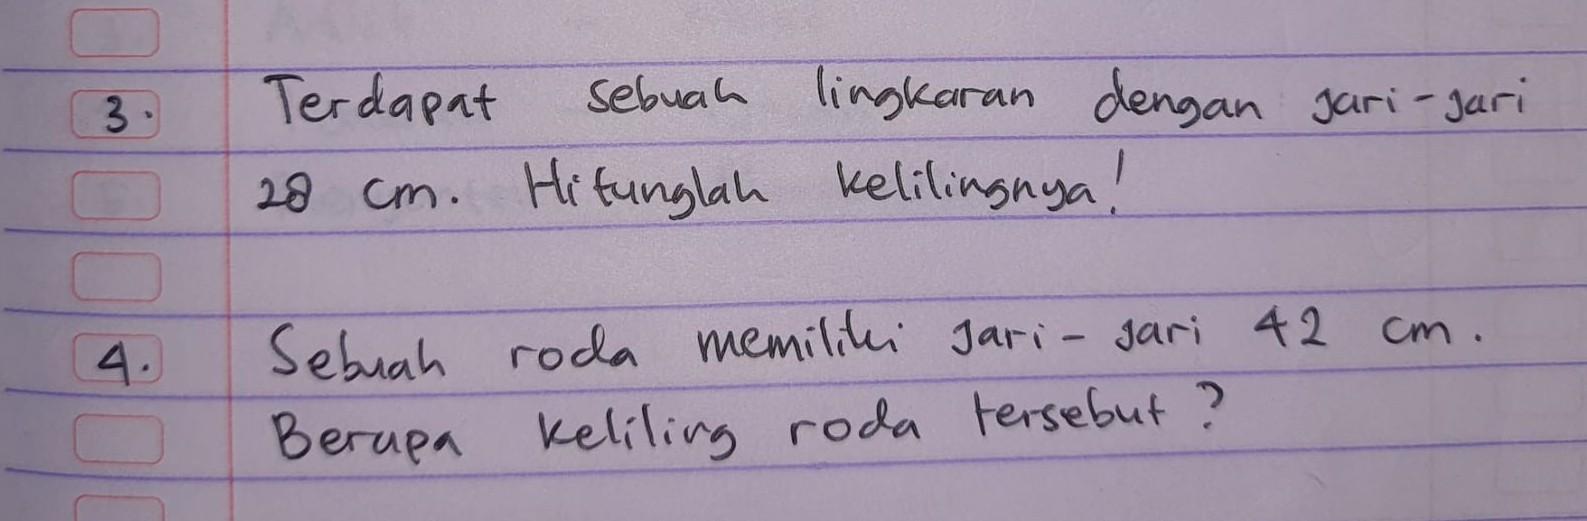 3. Terdapat sebuah lingkaran dengan jari-jari
28 cm. Hitunglah kelilingnya!
4. Sebuah roda memiliki jari-jari 42 cm.
Berapa keliling roda tersebut?